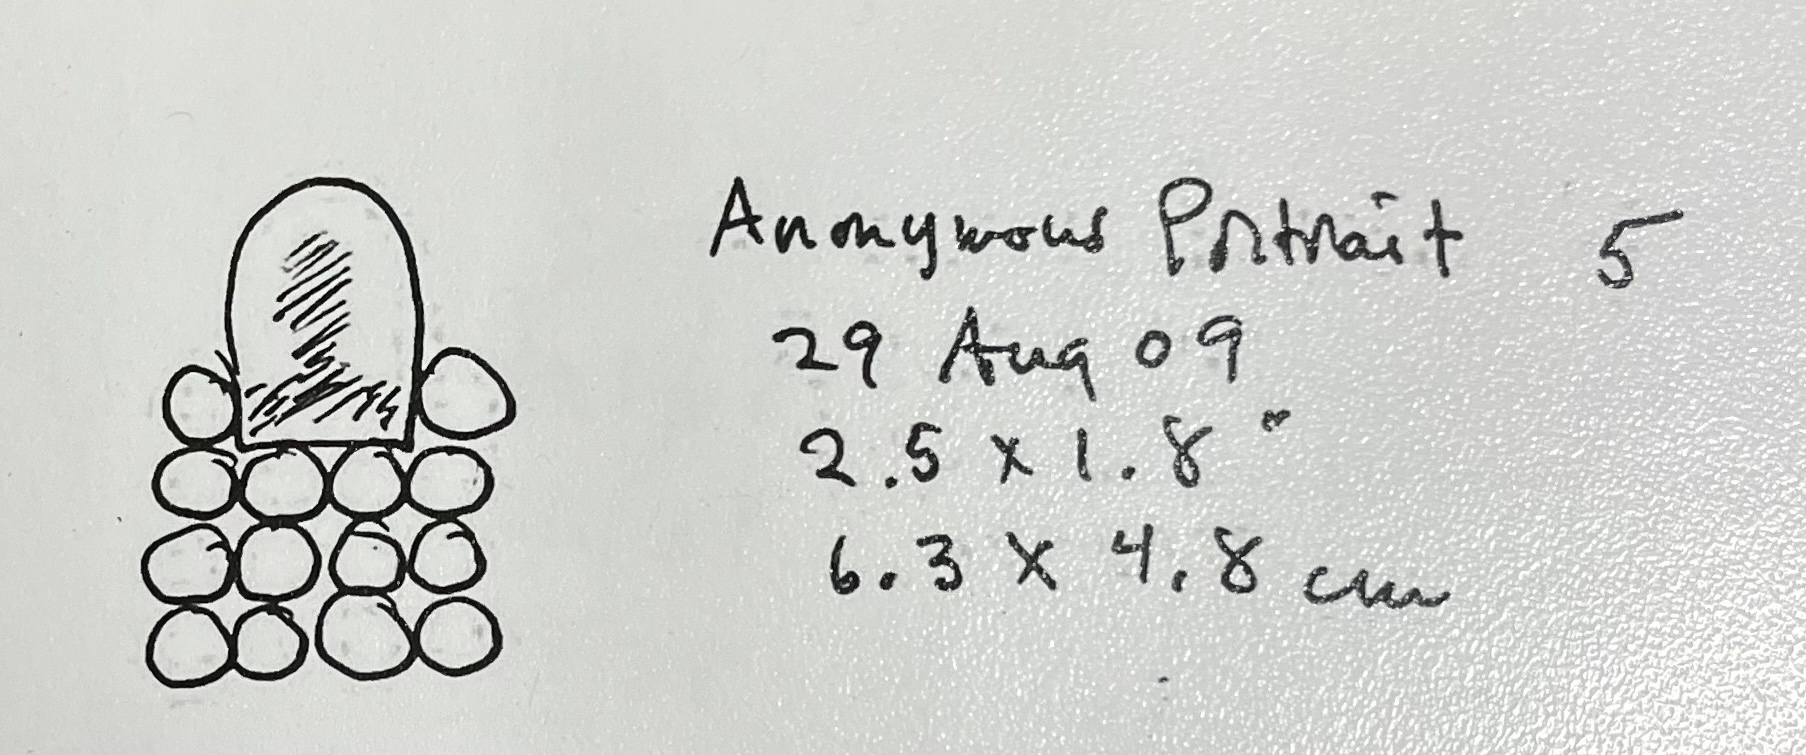 Anonymous Portrait 5
29 Aug 09
2.5 x 1.8"
6.3 x 4.8 cm